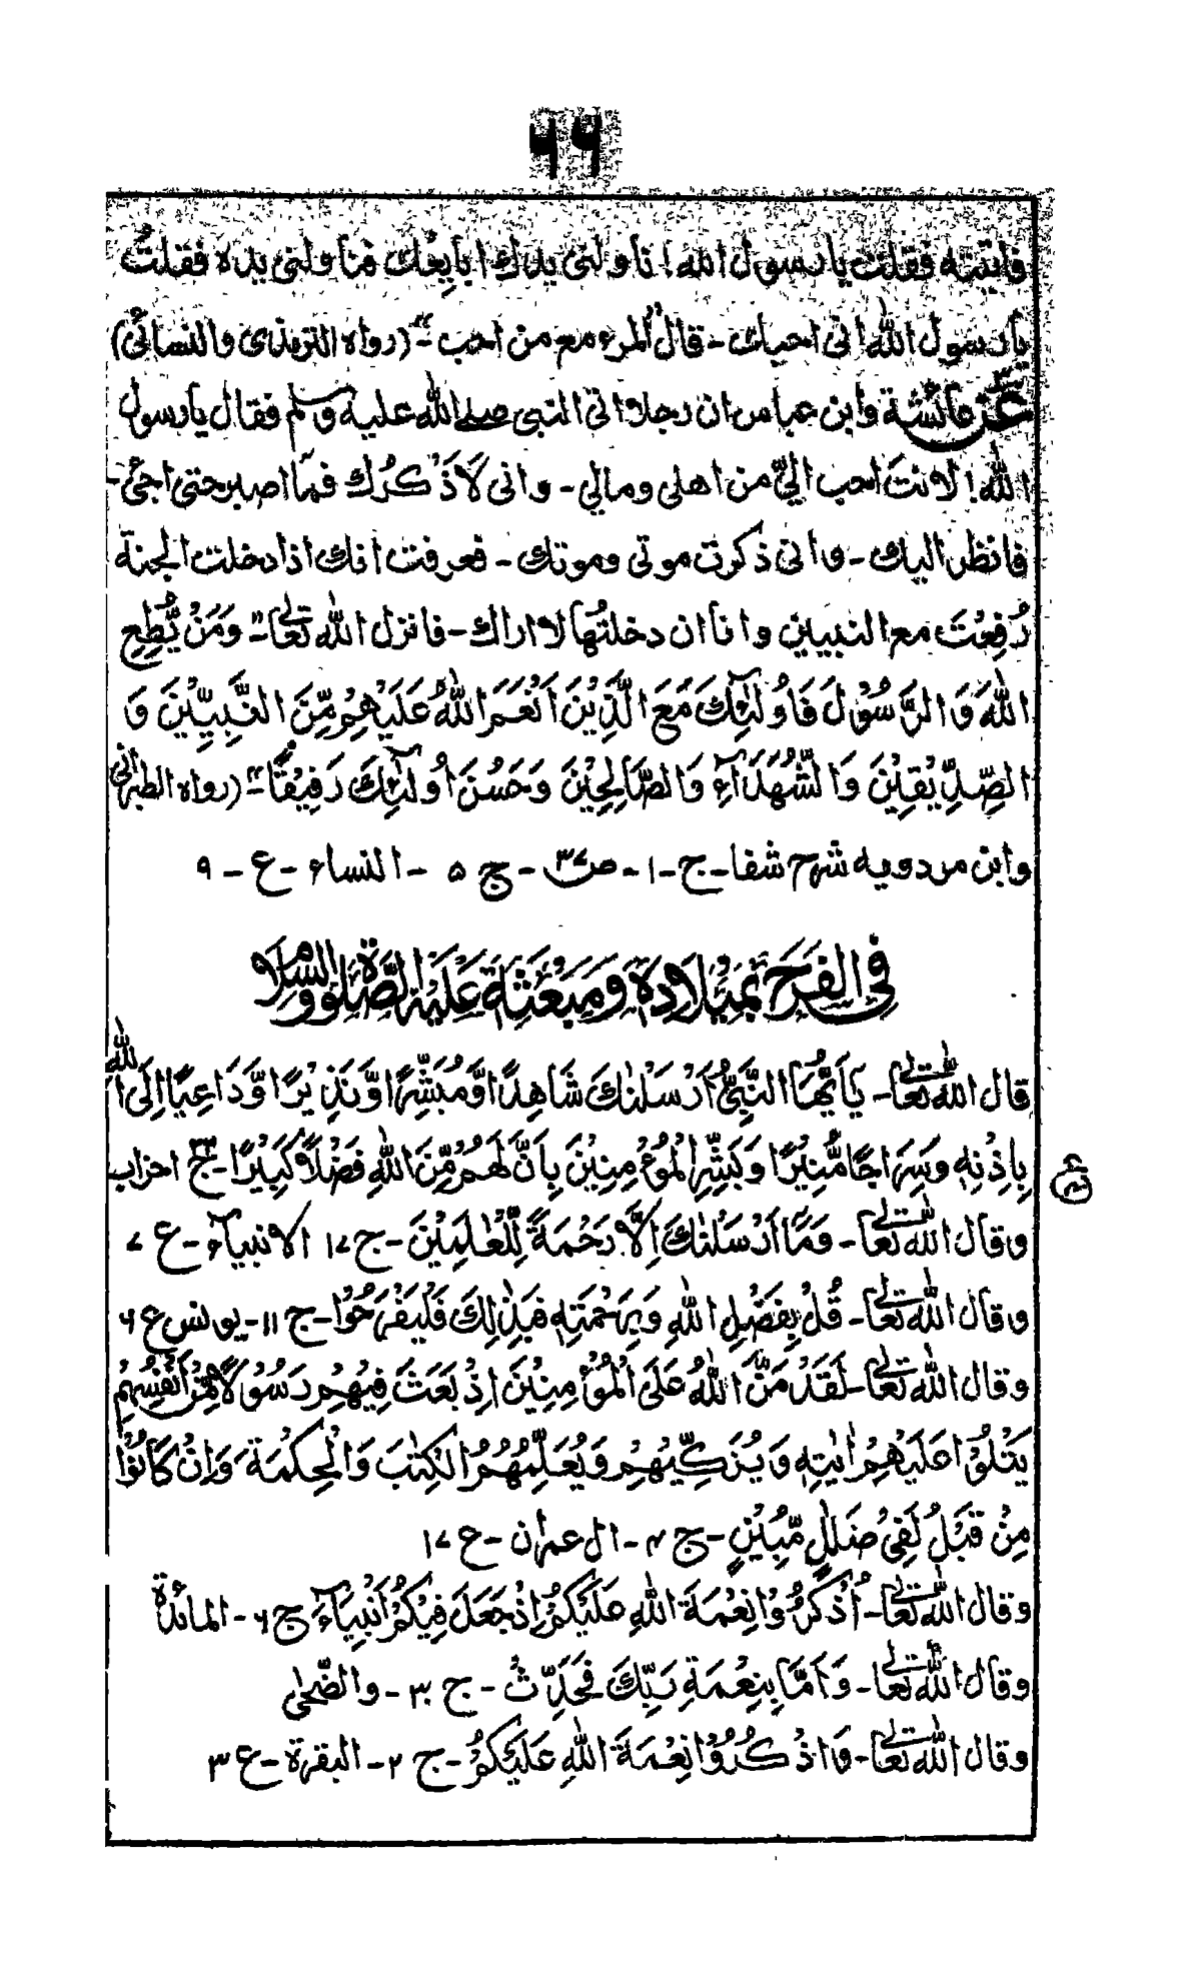 ۶۶
فاتيته فقلت يا رسول الله! ناولنى يدك ابايعك فناولنى يده فقلتُ
يا رسول الله انى احبك - قال "المرء مع من احب" - (رواه الترمذى والنسائى)
عن عائشة وابن عباس ان رجلا اتى النبى صلے الله عليه وسلم فقال يا رسول
الله! لانتَ احب اليَّ من اهلى ومالي - وانى لَاَذْكُرُك فمَا اصبر حتى اجئ -
فانظر اليك - وانى ذكرت موتى وموتك - فعرفت انك اذا دخلت الجنة
رُفِعْتَ مع النبيين وانا ان دخلتُها لا اراك - فانزل الله تعالے - "وَمَنْ يُّطِعِ
اللّٰهَ وَالرَّسُوْلَ فَاُولٰٓئِكَ مَعَ الَّذِيْنَ اَنْعَمَ اللّٰهُ عَلَيْهِمْ مِّنَ النَّبِيّٖنَ وَ
الصِّدِّيْقِيْنَ وَالشُّهَدَآءِ وَالصّٰلِحِيْنَ وَحَسُنَ اُولٰٓئِكَ رَفِيْقًا" - (رواه الطبرانى
وابن مردويه شرح شفا - ج - ۱ - - ج ۵ - النساء - ع - ۹
فى الفَرَحِ بمِيْلَادِهٖ وَمَبْعَثِهٖ عَلَيْهِ الصَّلٰوةُ وَالسَّلَام
قال الله تعالے - يٰٓاَيُّهَا النَّبِىُّ اَرْسَلْنٰكَ شَاهِدًا وَّمُبَشِّرًا وَّنَذِيْرًا وَّدَاعِيًا اِلَى اللّٰهِ
بِاِذْنِهٖ وَسِرَاجًا مُّنِيْرًا وَبَشِّرِ الْمُؤْمِنِيْنَ بِاَنَّ لَهُمْ مِّنَ اللّٰهِ فَضْلًا كَبِيْرًا - ج ۲۲ احزاب
وقال الله تعالے - وَمَا اَرْسَلْنٰكَ اِلَّا رَحْمَةً لِّلْعٰلَمِيْنَ - ج ۱۷ الانبياء - ع ۷
وقال الله تعالے - قُلْ بِفَضْلِ اللّٰهِ وَبِرَحْمَتِهٖ فَبِذٰلِكَ فَلْيَفْرَحُوْا - ج ۱۱ - يونس ع ۶
وقال الله تعالے - لَقَدْ مَنَّ اللّٰهُ عَلَى الْمُؤْمِنِيْنَ اِذْ بَعَثَ فِيْهِمْ رَسُوْلًا مِّنْ اَنْفُسِهِمْ
يَتْلُوْا عَلَيْهِمْ اٰيٰتِهٖ وَيُزَكِّيْهِمْ وَيُعَلِّمُهُمُ الْكِتٰبَ وَالْحِكْمَةَ وَاِنْ كَانُوْا
مِنْ قَبْلُ لَفِىْ ضَلٰلٍ مُّبِيْنٍ - ج ۴ - ال عمران - ع ۱۷
وقال الله تعالے - اُذْكُرُوْا نِعْمَةَ اللّٰهِ عَلَيْكُمْ اِذْ جَعَلَ فِيْكُمْ اَنْبِيَآءَ ج ۶ - المائدة
وقال الله تعالے - وَاَمَّا بِنِعْمَةِ رَبِّكَ فَحَدِّثْ - ج ۳۰ - والضّحٰى
وقال الله تعالے - وَاذْكُرُوْا نِعْمَةَ اللّٰهِ عَلَيْكُمْ - ج ۲ - البقرة - ع ۳